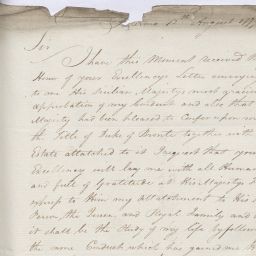 Palermo 13th August 1799
Sir
I have this Moment received the
Honr of your Excellencys Letter conveying
to me His Sicilian Majestys most gracious
approbation of my Conduct and also that
Majesty had been pleased to Confer upon me
the Title of Duke of Bronte together with
Estate attatched to it I request that your
Excellency will lay me with all Humility
and full of Gratitude at His Majestys
to Him my Attatchment to His
Person, the Queen and Royal Family and
it shall be the Study of my life by follow
the same Conduct which has gained me